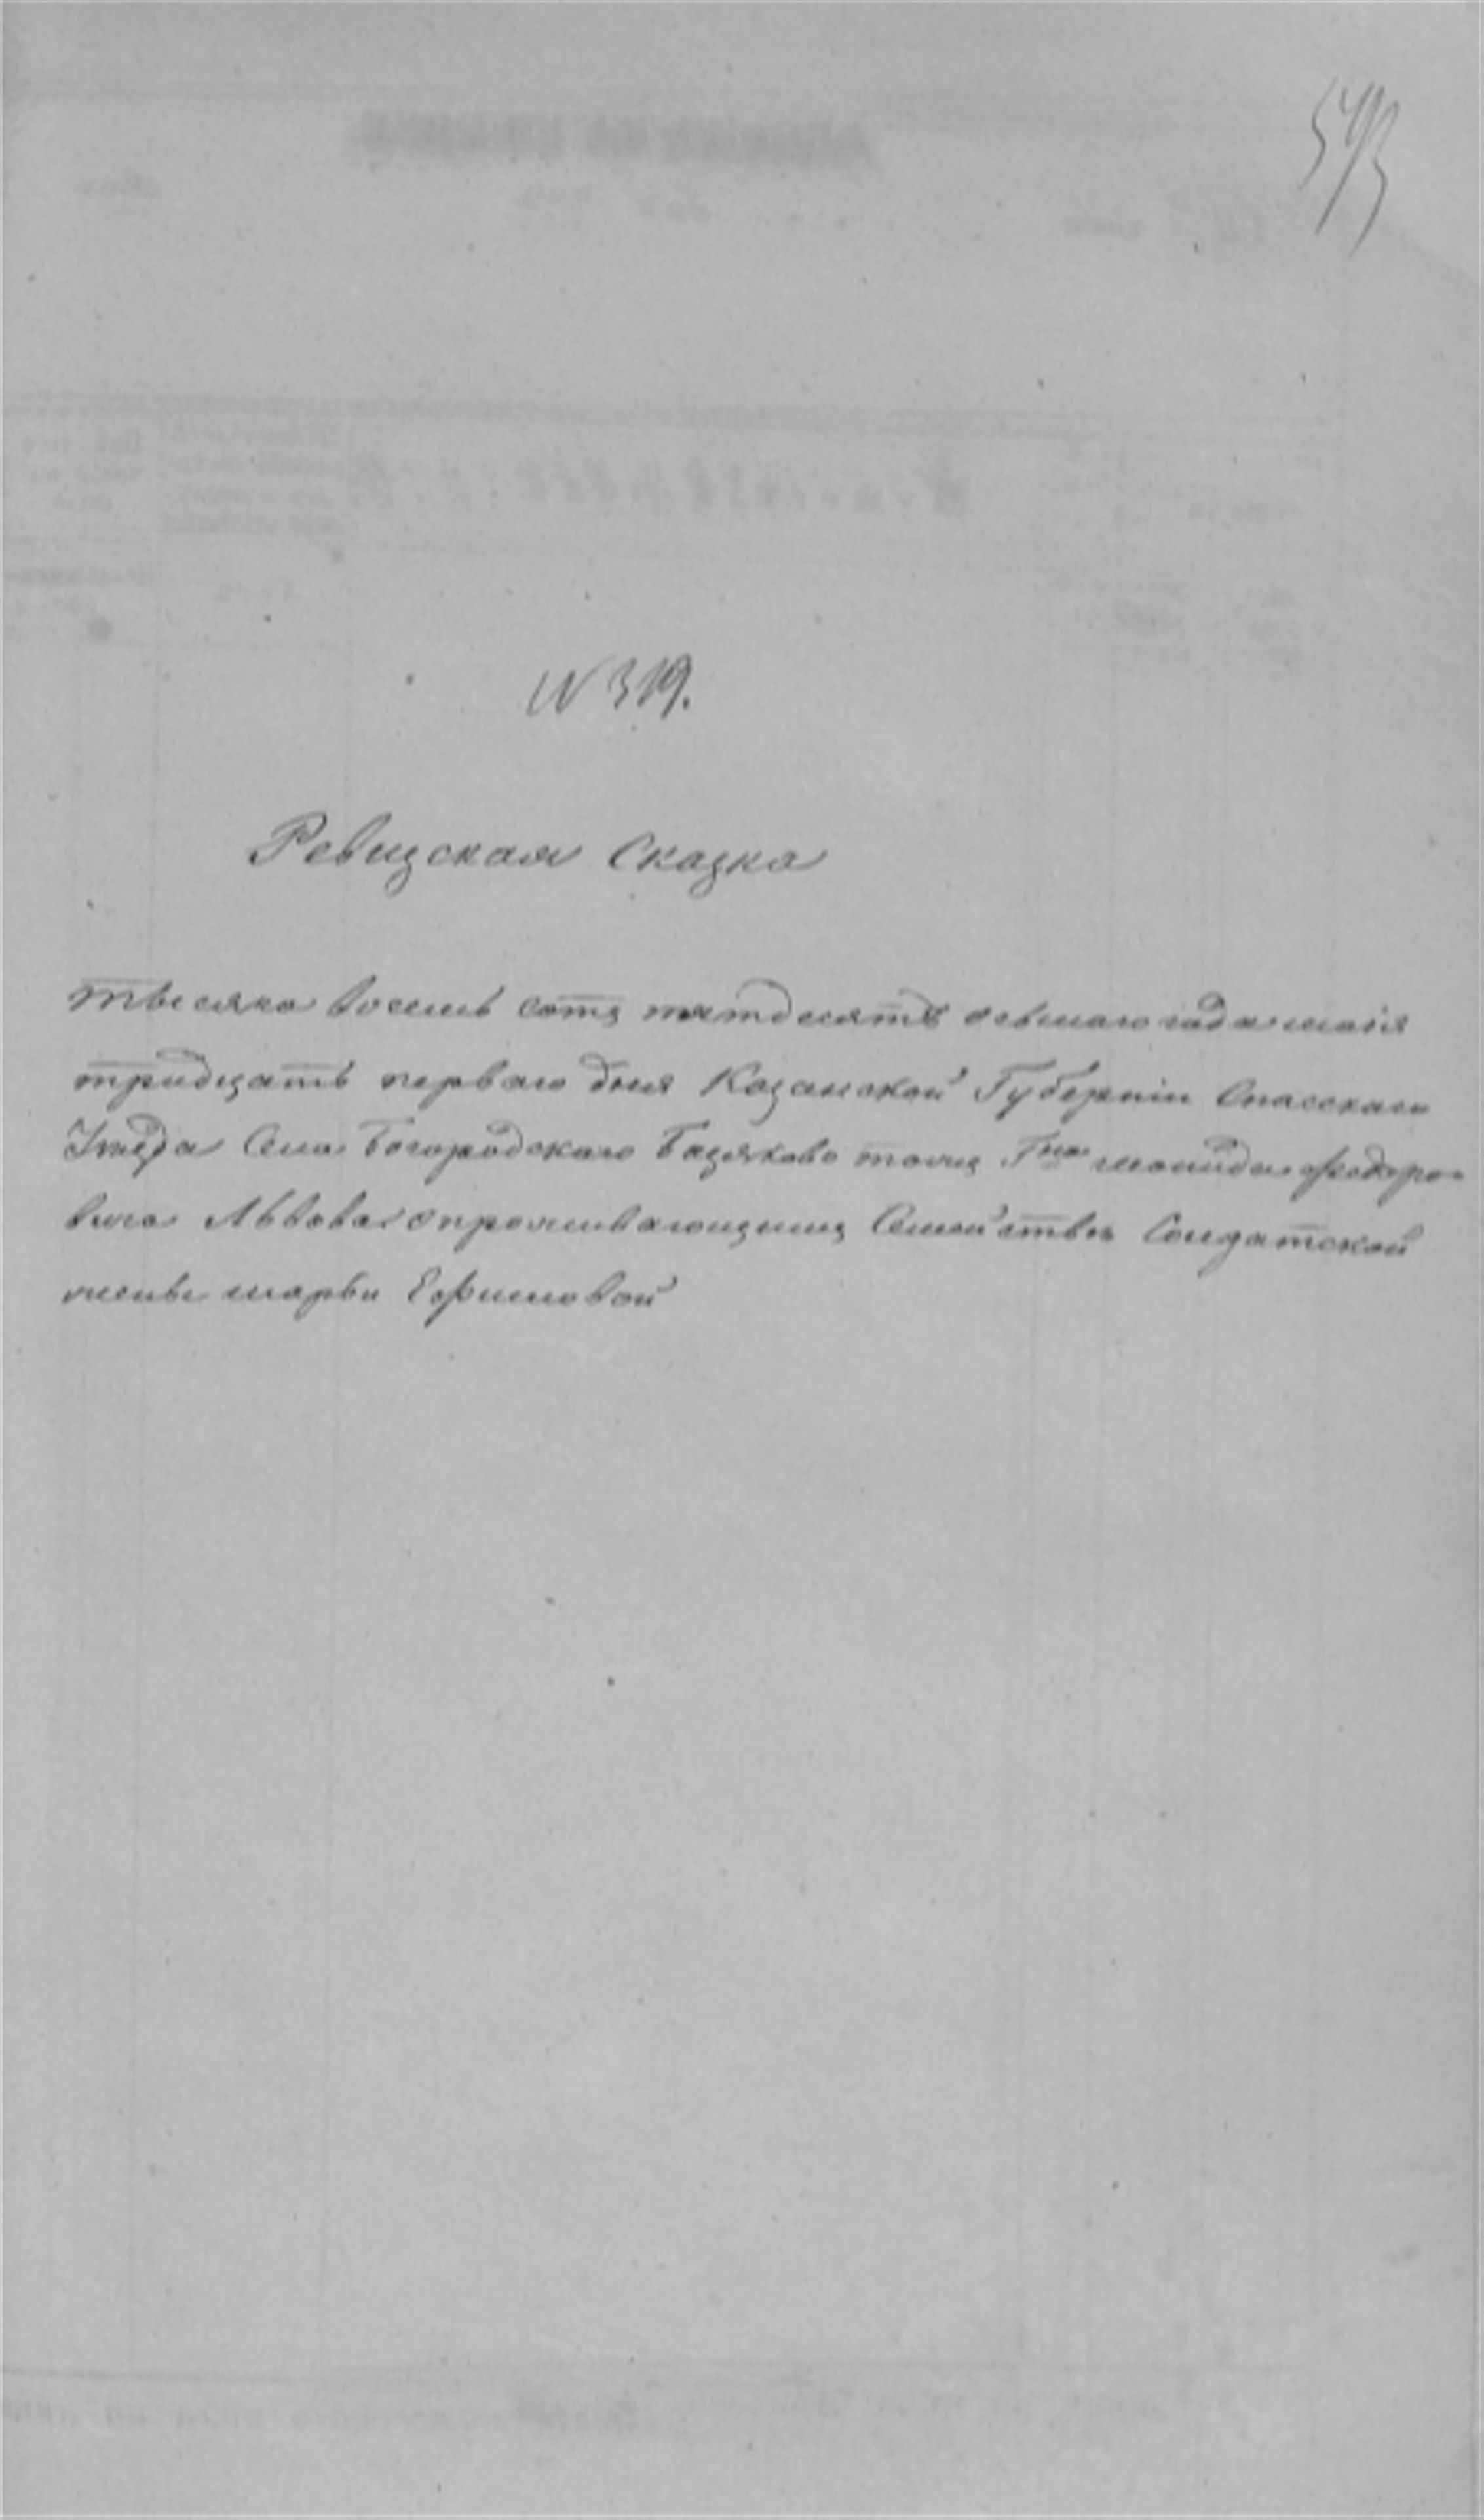 543
N 319.
Ревизская Сказка
тысяча восемь сотъ пятдесятъ осьмаго года маія
тридцать перваго дня Казанской Губерніи Спасскаго
Уѣзда Села Богородскаго тожъ Гна Леонида Федоро-
вича Львова опроживающимъ Семействѣ Солдатской
жены Марьи Ефимовой